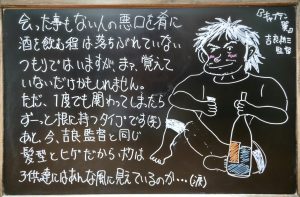 会った事もない人の悪口を肴に
酒を飲む程は落ちぶれていない
つもりではいますが、まァ、覚えて
いないだけかもしれません。
ただ、1度でも関わってしまったら
ずーっと根に持つタイプです(笑)
あと、今、吉良監督と同じ
髪型とヒゲだから、ボクは
子供達にはあんな風に見えているのか…(涙)
吉良耕三
監督